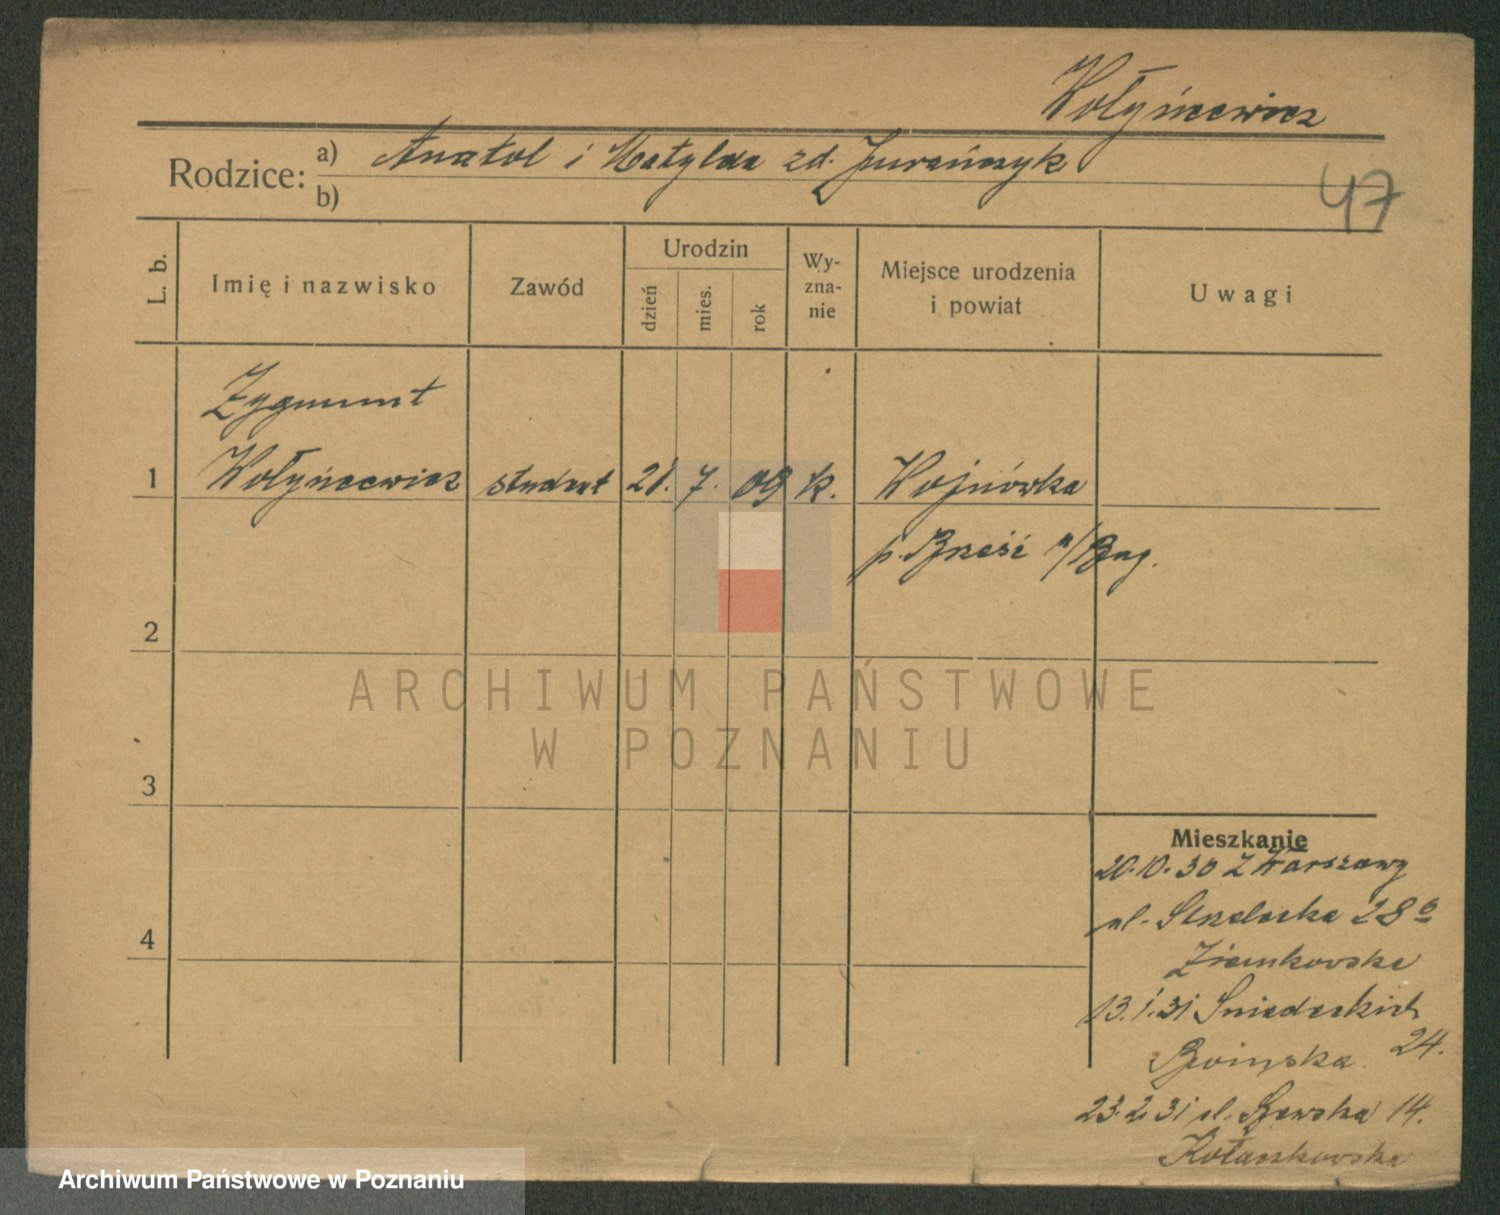 Wołyńcewicz
Rodzice: a) Anatol i Matylda zd. Jurańczyk
b)
47
L. b.
Imię i nazwisko
Zawód
Urodzin
dzień
mies.
rok
Wy-
zna-
nie
Miejsce urodzenia
i powiat
Uwagi
Zygmunt
1 Wołyńcewicz student 21. 7. 09 k. Wojnówka
p. Brześć n/Bug.
2
ARCHIWUM PAŃSTWOWE
W POZNANIU
3
Mieszkanie
20.10.30 z Warszawy
ul. Strzelecka 28
4
Ziemkowska
13.1.31 Śniadeckich
24.
23.2.31 ul. 14.
Kołaszkowska
Archiwum Państwowe w Poznaniu